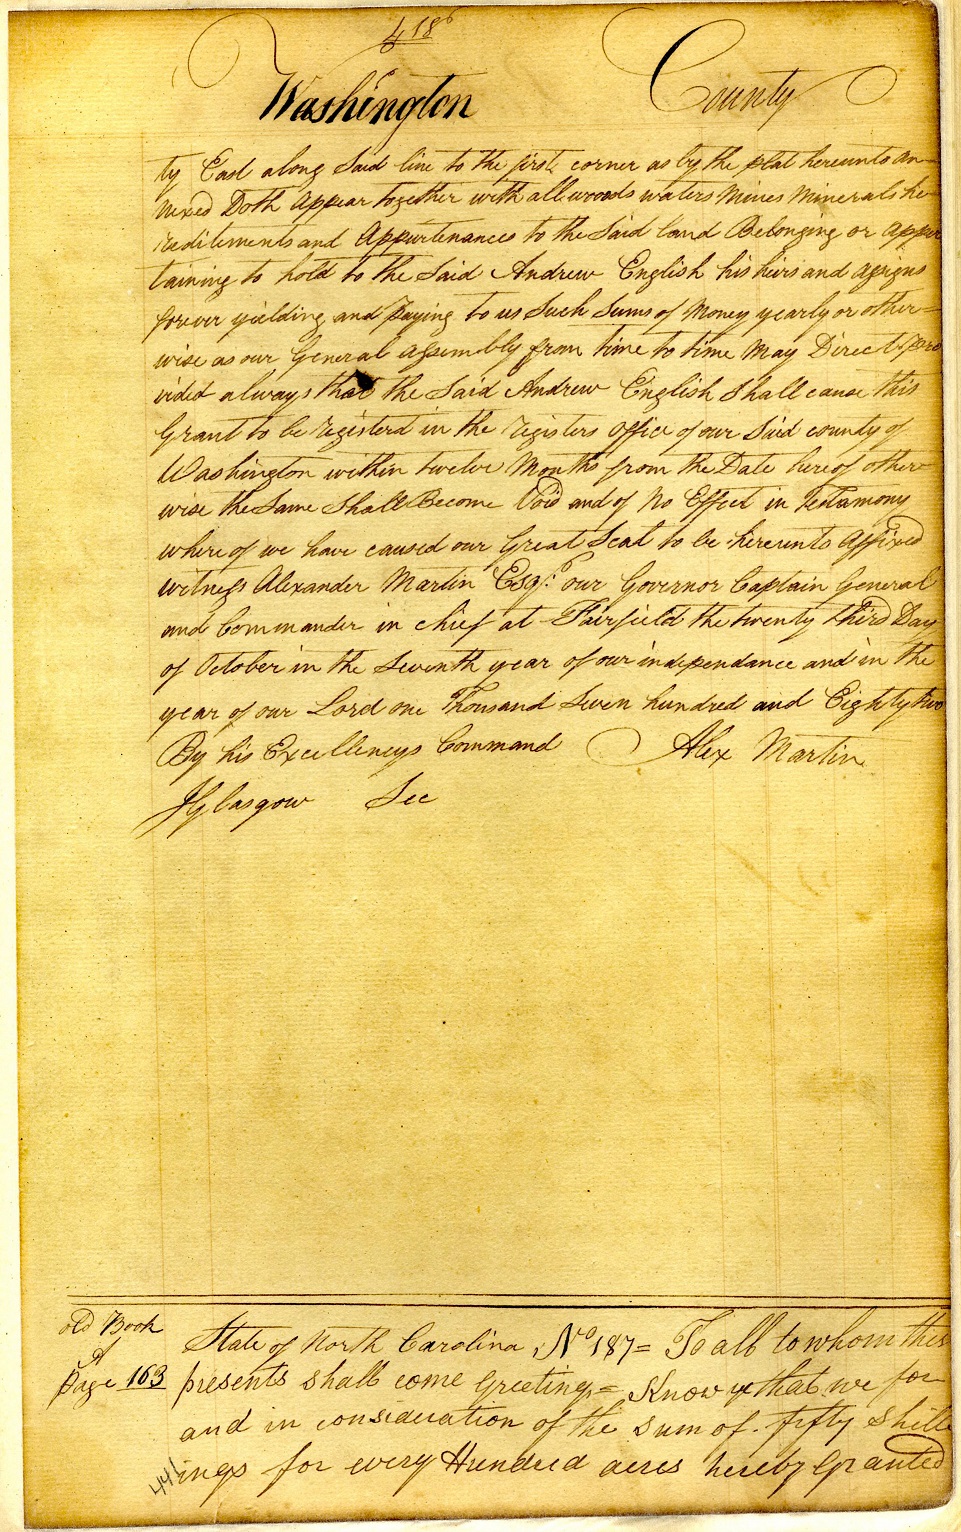 418
Washington County
ty East along Said line to the first corner as by the plat hereunto an-
nexed Doth Appear together with all woods waters Mines Minerals he-
reditements and Appurtenances to the Said land Belonging or appur
taining to hold to the Said Andrew English his heirs and assigns
forever yielding and Paying to us Such Sums of Money yearly or other=
wise as our General Assembly from time to time May Direct Pro
vided always that the Said Andrew English Shall cause this
Grant to be registerd in the registers office of our Said county of
Washington within twelve Months from the Date hereof other-
wise the Same Shall Become Void and of No Effect in Testamony
where of we have caused our Great Seal to be hereunto Affixed
witness Alexander Martin Esqr. our Governor Captain General
and Commander in chief at Fairfield the twenty third Day
of October in the Seventh year of our independance and in the
year of our Lord one Thousand Seven hundred and Eighty two
By his Excellencys Command Alex Martin
J Glasgow Sec
old Book
A
Page 163
State of North Carolina No 187= To all to whom this
presents shall come Greeting= Know ye that we for
and in consideration of the sum of fifty Shill
ings for every Hundred acres hereby Granted
441